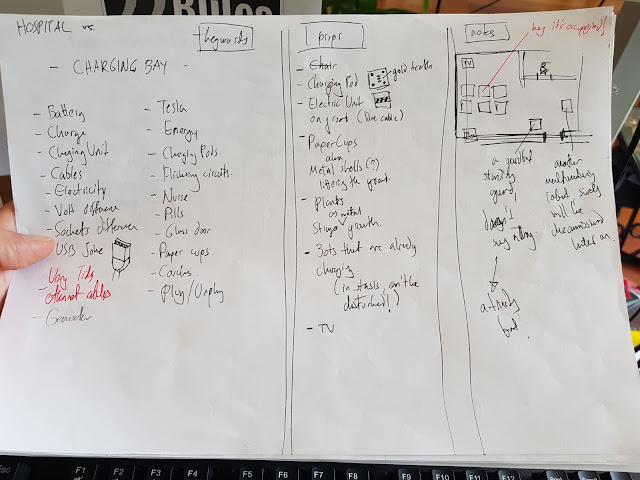 HOSPITAL vs.
- CHARGING BAY -
keywords
- Battery
- Charge
- Charging Unit
- Cables
- Electricity
- Volt difference
- Sockets difference
- USB Joke
- Very Tidy
ethernet cables
- Generator
- Tesla
- Energy
- Charging Pods
- Flickering circuits.
- Nurse
- Pills
- Glass door
- Paper cups.
- Couches.
- Plug / Unplug
props
- Chair
- Charging Pod
gold teeth
- Electric Unit
on ground (like cable)
- Paper Cups
Metal shells (?)
littering the ground.
- Plants
or metal
growth.
- Bots that are already
charging
(in stasis, can't be
disturbed!)
- TV
notes
hey it's occupied!
TV
a guardbot
standing
guard,
doesn't
say nothing.
another
malfunctioning
robot. Surely
will be
decommissioned
later on.
Esc
F1
F2
F3
F4
F5
F6
F7
F8
F9
F10
F11
F12